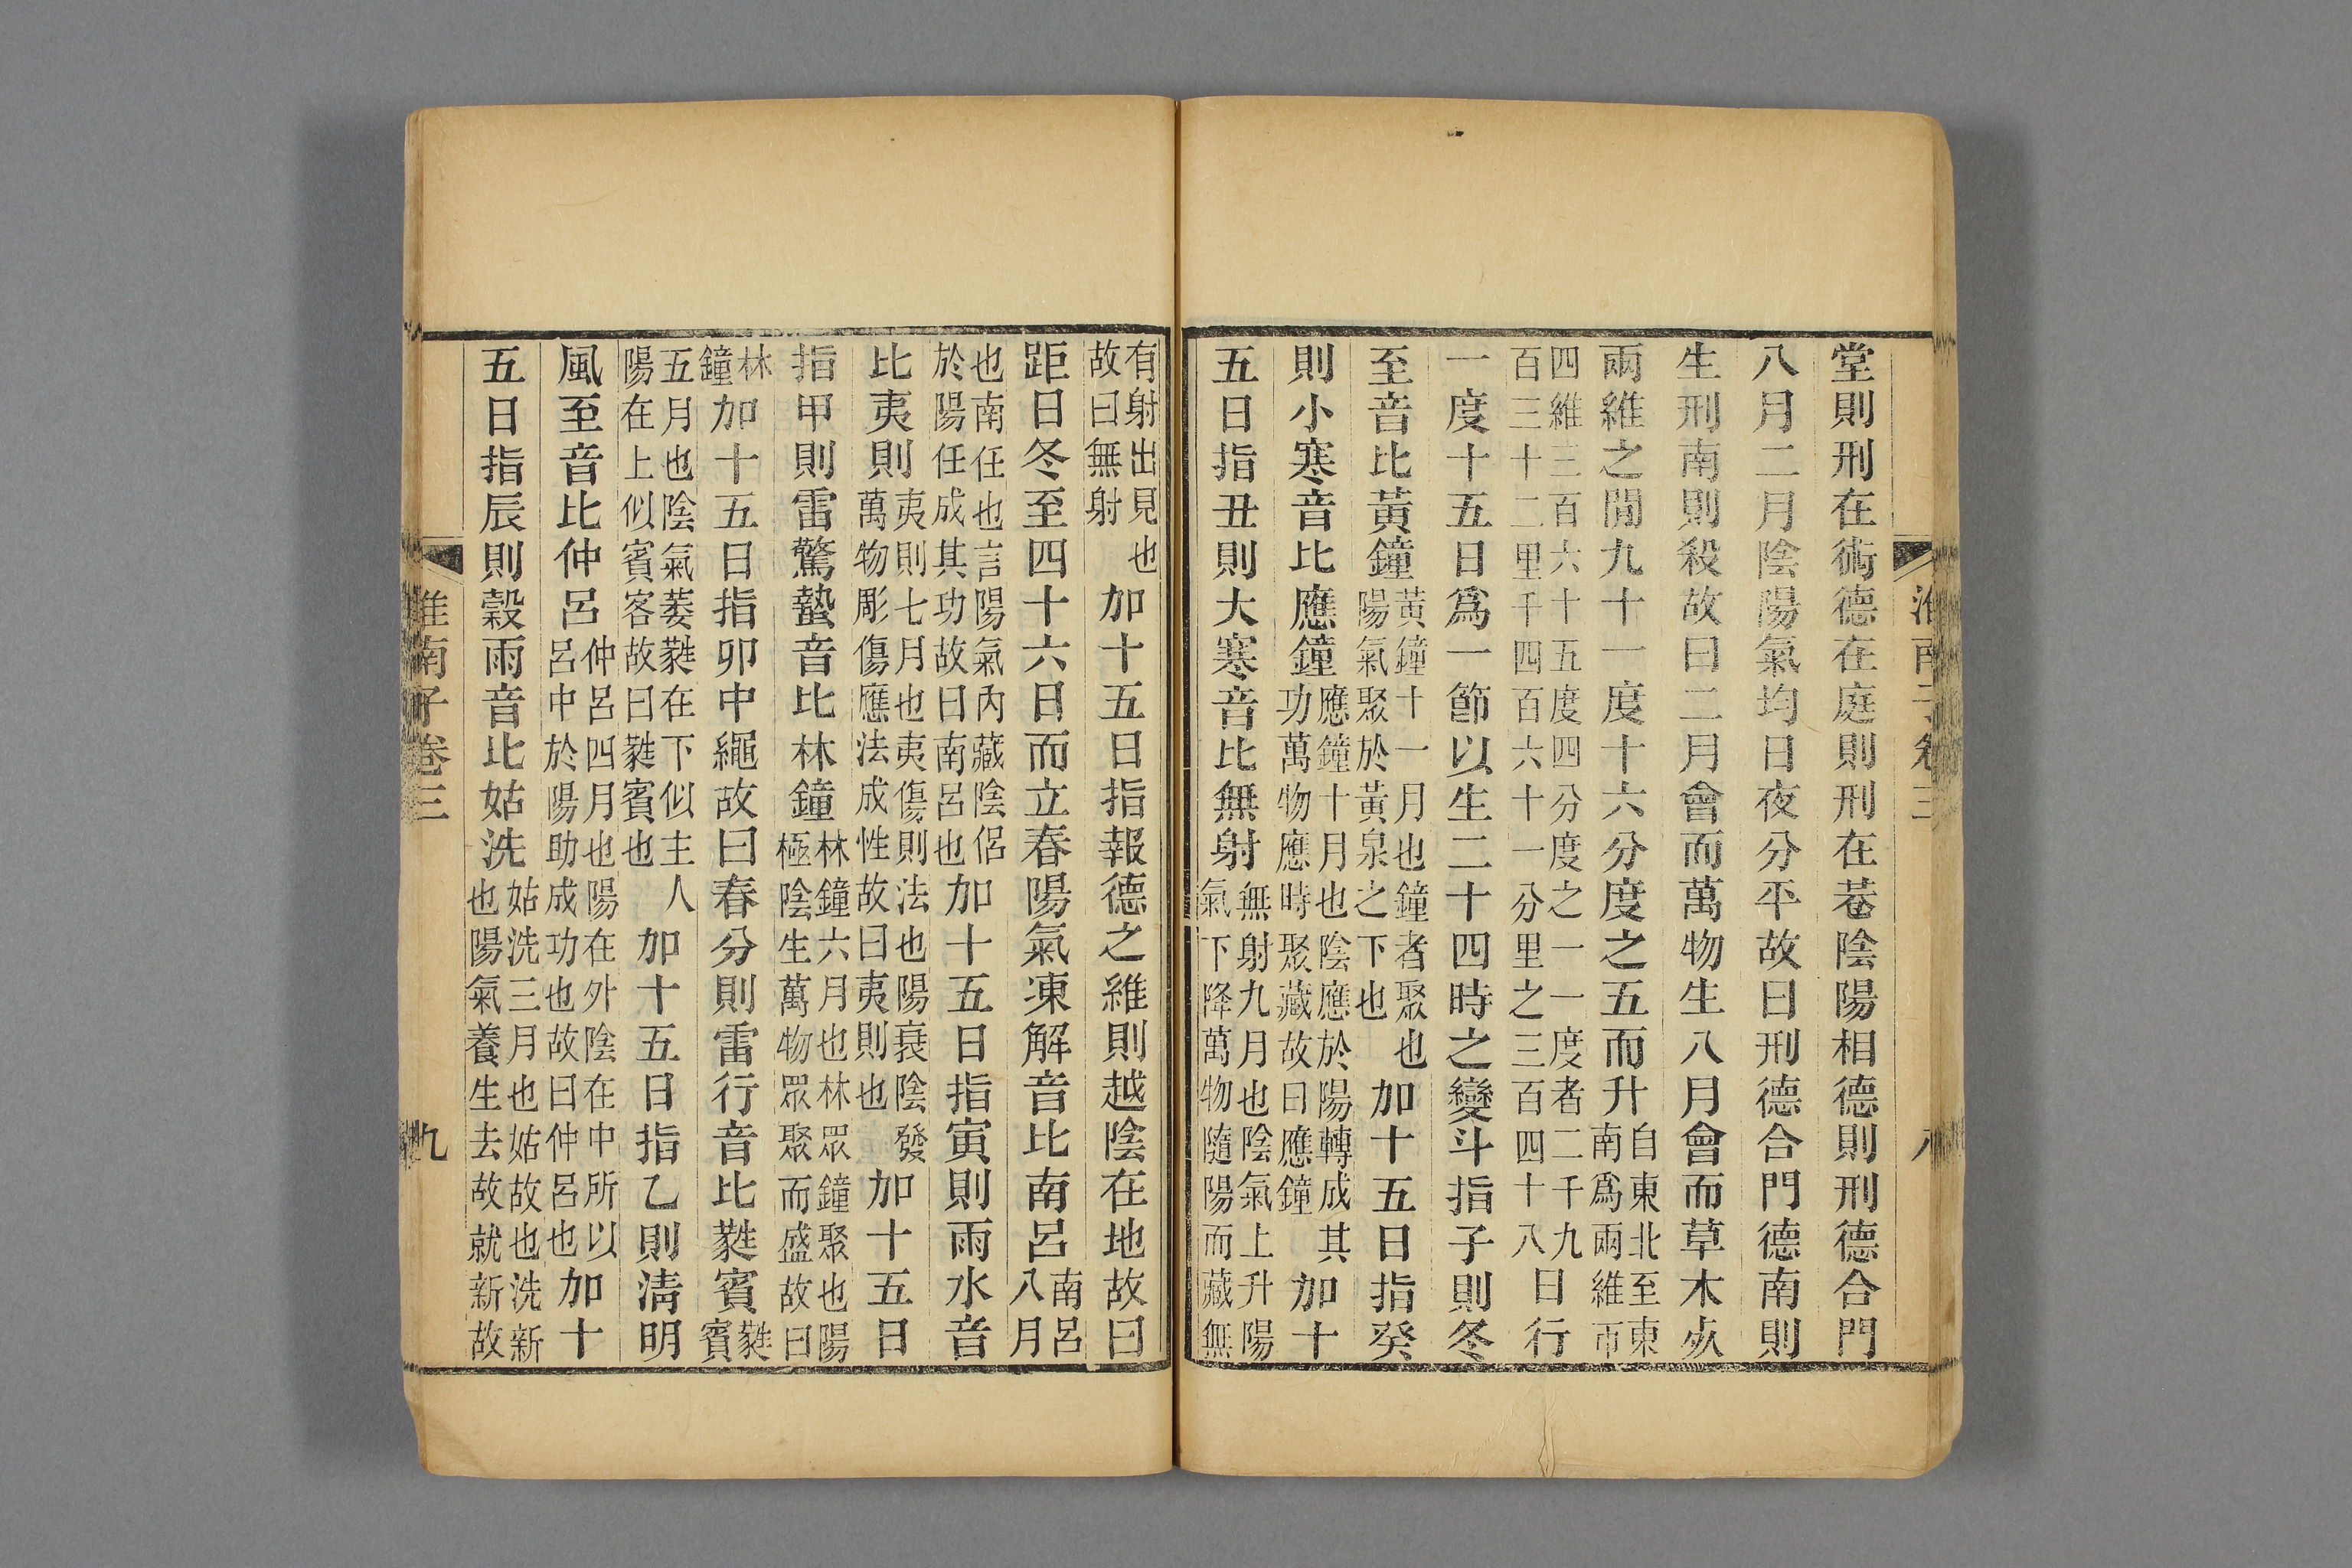 淮南子卷三 八
堂則刑在術德在庭則刑在巷陰陽相德則刑德合門
八月二月陰陽氣均日夜分平故曰刑德合門德南則
生刑南則殺故曰二月會而萬物生八月會而草木死
兩維之閒九十一度十六分度之五而升自東北至東南爲兩維帀
四維三百六十五度四分度之一一度者二千九百三十二里千四百六十一分里之三百四十八日行
一度十五日爲一節以生二十四時之變斗指子則冬
至音比黃鐘黃鐘十一月也鐘者聚也陽氣聚於黃泉之下也加十五日指癸
則小寒音比應鐘應鐘十月也陰應於陽轉成其功萬物應時聚藏故曰應鐘加十
五日指丑則大寒音比無射無射九月也陰氣上升陽氣下降萬物隨陽而藏無
有射出見也故曰無射加十五日指報德之維則越陰在地故曰
距日冬至四十六日而立春陽氣凍解音比南呂南呂八月
也南任也言陽氣內藏陰侶於陽任成其功故曰南呂也加十五日指寅則雨水音
比夷則夷則七月也夷傷則法也陽衰陰發萬物彫傷應法成性故曰夷則也加十五日
指甲則雷驚蟄音比林鐘林鐘六月也林眾鐘聚也陽極陰生萬物眾聚而盛故曰
林鐘加十五日指卯中繩故曰春分則雷行音比蕤賓蕤賓
五月也陰氣萎蕤在下似主人陽在上似賓客故曰蕤賓也加十五日指乙則淸明
風至音比仲呂仲呂四月也陽在外陰在中所以呂中於陽助成功也故曰仲呂也加十
五日指辰則穀雨音比姑洗姑洗三月也姑故也洗新也陽氣養生去故就新故
淮南子卷三 九